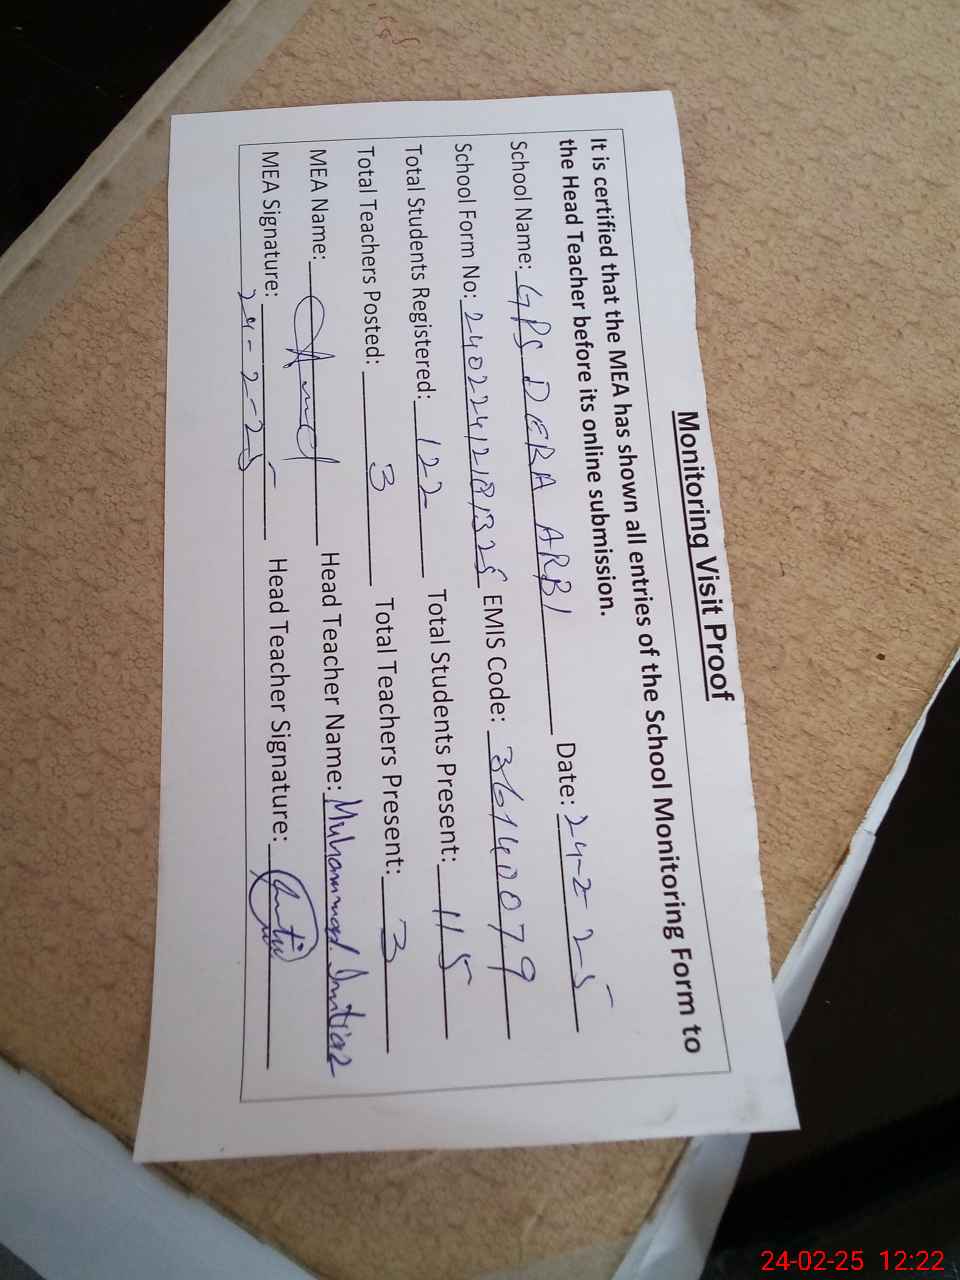 Monitoring Visit Proof
It is certified that the MEA has shown all entries of the School Monitoring Form to
the Head Teacher before its online submission.
School Name: GPS DERA ARBI Date: 24-2-25
School Form No: 24022412181325 EMIS Code: 36140079
Total Students Registered: 122 Total Students Present: 115
Total Teachers Posted: 3 Total Teachers Present: 3
MEA Name: Head Teacher Name: Muhammad Imtiaz
MEA Signature: Head Teacher Signature:
24-2-25
24-02-25 12:22